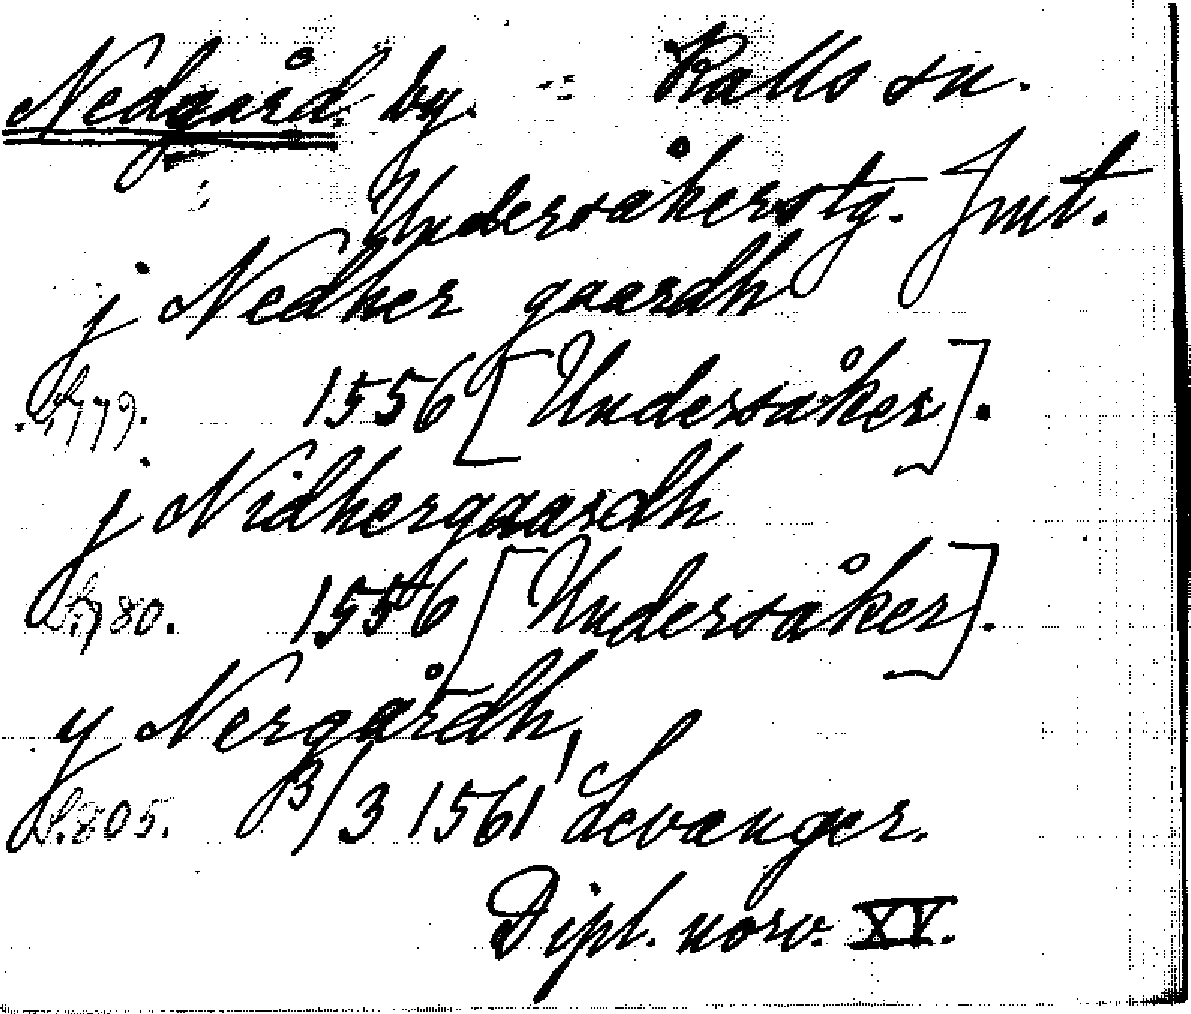 Nedgård by. Kalls sn.
Undersåkers tg. Jmt.
j Nedher gaardh
S. 779. 1556 [Undersåker].
j Nidhergaardh
S. 780. 1556 [Undersåker].
y Nergårdh,
S. 805. 13/3 1561 Levanger.
Dipl. norv. XV.